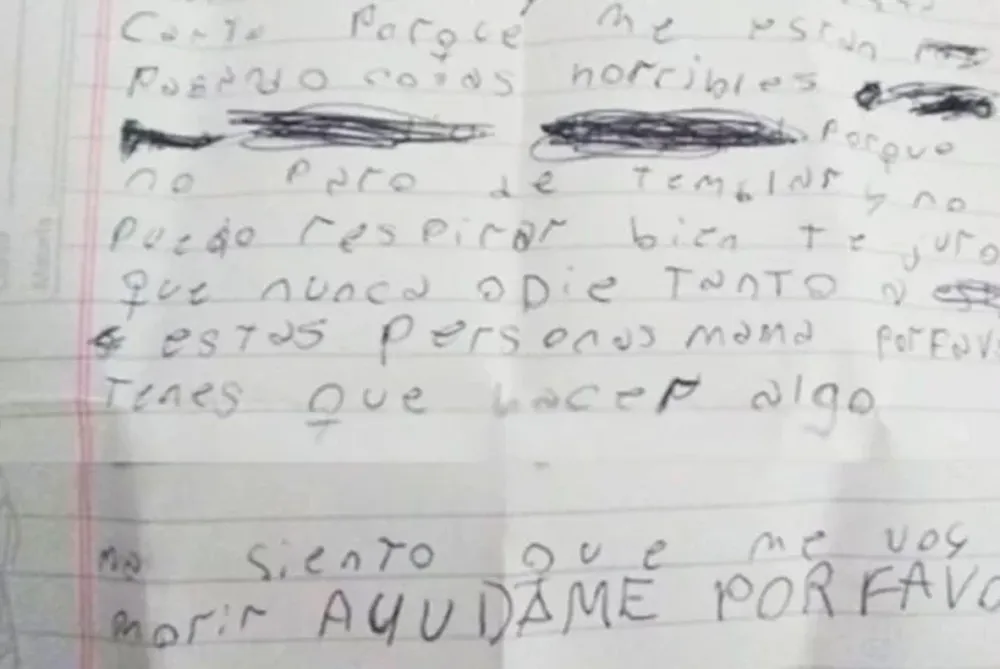 Carta Porque me están
Pasando cosas horribles
Porque
no Paro de Temblar y no
Puedo respirar bien Te juro
que nunca odie TanTO a
esTas Personas mama PorFav
Tenes que hacer algo
siento que me voy
morir AYUDAME POR FAVO